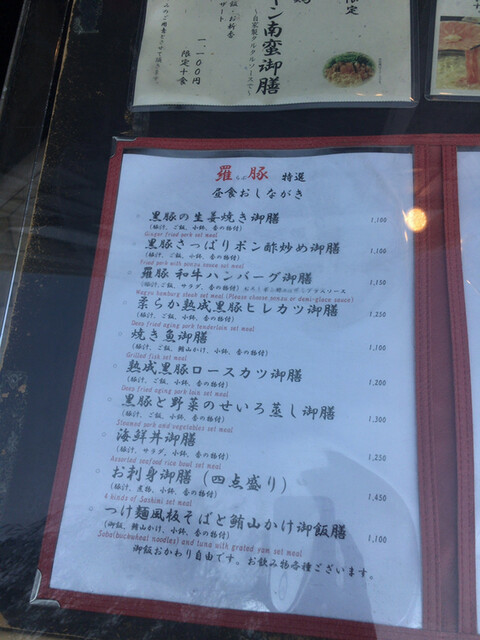 限定
チン南蛮御膳
～自家製タルタルソースで～
飯・お新香
ザート
1,100円
限定十食
羅豚 特選
昼食おしながき
黒豚の生姜焼き御膳 1,100
(豚汁、ご飯、小鉢、香の物付)
Ginger fried pork set meal
黒豚さっぱりポン酢炒め御膳 1,100
(豚汁、ご飯、小鉢、香の物付)
Fried pork with ponzu sauce set meal
羅豚 和牛ハンバーグ御膳 1,150
(豚汁、ご飯、サラダ、香の物付)
Wagyu hamburg steak set meal (Please choose ponzu or demi-glace sauce)
柔らか熟成黒豚ヒレカツ御膳 1,250
(豚汁、ご飯、小鉢、香の物付)
Deep fried aging pork tenderloin set meal
焼き魚御膳 1,100
(豚汁、ご飯、鮪山かけ、小鉢、香の物付)
Grilled fish set meal
熟成黒豚ロースカツ御膳 1,200
(豚汁、ご飯、小鉢、香の物付)
Deep fried aging pork loin set meal
黒豚と野菜のせいろ蒸し御膳 1,300
(豚汁、ご飯、小鉢、香の物付)
Steamed pork and vegetables set meal
海鮮丼御膳 1,250
(豚汁、サラダ、小鉢、香の物付)
Assorted seafood rice bowl set meal
お刺身御膳（四点盛り） 1,450
(豚汁、煮物、小鉢、香の物付)
4 kinds of Sashimi set meal
つけ麺風板そばと鮪山かけ御飯膳 1,100
(御飯、鮪山かけ、小鉢、香の物付)
Soba(buckwheat noodles) and tuna with grated yam set meal
御飯おかわり自由です。お飲み物各種ございます。